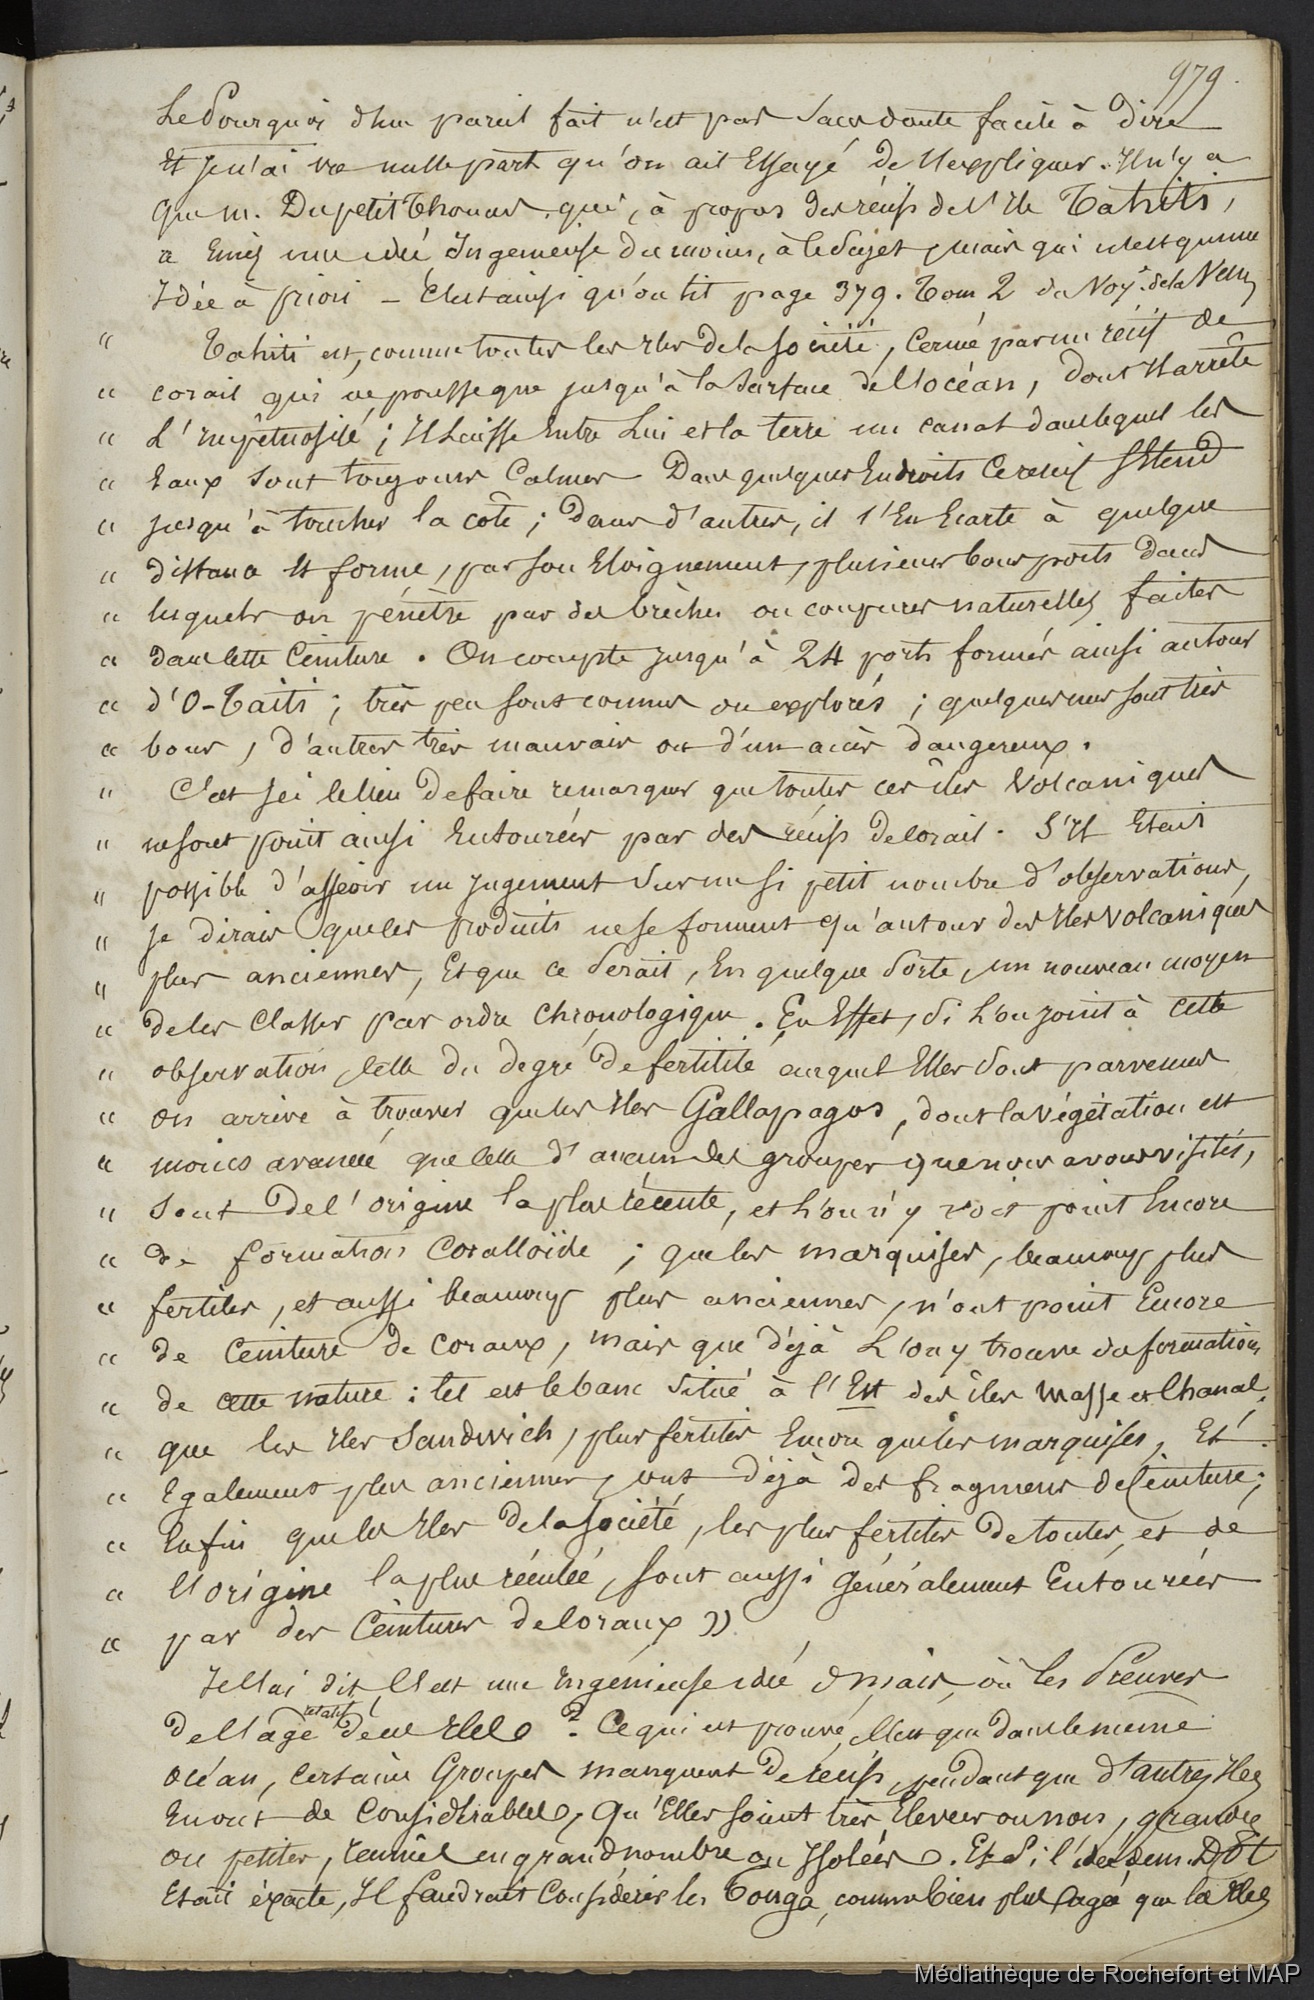 979.
Le Pourquoi d'un pareil fait n'est pas sans doute facile à dire
Et je n'ai vu nulle part qu'on ait Essayé de l'expliquer. Il n'y a
que m. Dupetit Thouars qui, à propos des récifs de l'Ile Tahiti,
a Emis une idée Ingenieuse du moins, à ce Sujet, mais qui n'est qu'une
Idée à priori – C'est ainsi qu'on lit page 379. Tom 2 du Voy. de la Vénus
" Tahiti est, comme toutes les Iles de la Société, Cerné par un récif de
" corail qui ne pousse que jusqu'à la Surface de l'océan, dont Il arrête
" L'impétuosité ; Il Laisse Entre Lui et la terre un canal dans lequel les
" Eaux sont toujours Calmes Dans quelques Endroits Ce récif s'Etend
" jusqu'à toucher la côte ; dans d'autres, il s'En Ecarte à quelque
" distance Et forme, par son Eloignement, plusieurs bons ports dans
" lesquels on pénètre par des brèches ou coupures naturelles faites
" dans cette Ceinture. On compte jusqu'à 24 ports formés ainsi autour
" d'O-Taiti ; très peu sont connus ou explorés ; quelques uns sont très
" bons, d'autres très mauvais ou d'un accès dangereux.
" C'est Ici le lieu de faire remarquer que toutes ces îles Volcaniques
" ne sont point ainsi Entourées par des récifs de Corail. S'Il Etait
" possible d'asseoir un jugement sur un si petit nombre d'observations,
" je dirais que ces produits ne se forment qu'autour des Iles Volcaniques
" plus anciennes, Et que ce serait, En quelque Sorte, un nouveau moyen
" de les Classer par ordre Chronologique. En Effet, Si L'on joint à cette
" observation, celle du degré de fertilité auquel Elles sont parvenues
" on arrive à trouver que les Iles Gallapagos, dont la végétation est
" moins avancée que celle d'aucun des groupes que nous avons visités,
" sont de l'origine la plus récente, et L'on n'y voit point Encore
" de formation Coralloïde ; que les marquises, beaucoup plus
" fertiles, et aussi beaucoup plus anciennes, n'ont point Encore
" de Ceinture de Coraux, mais que déjà L'on y trouve des formations
" de cette nature : tel est le banc Situé à l'Est des îles Masse et Chanal,
" que les Iles Sandwich, plus fertiles Encore que les marquises, Et
" Egalement plus anciennes, ont déjà des fragmens de Ceinture ;
" Enfin que les Iles de la Société, les plus fertiles de toutes, et de
" l'origine la plus réculée, sont aussi généralement Entourées
" par des Ceintures de Coraux »
Je l'ai dit, C'est une Ingénieuse idée ; mais, où les Preuves
de l'age relatif de ces Iles ? Ce qui est prouvé, c'est que dans le même
océan, certains Groupes manquent de récifs, pendant que d'autres Iles
En ont de Considérables, Qu'Elles soient très Elevées ou non, grandes
ou petites, réunies en grand nombre ou Isolées. Et Si l'idée de m. D.P.T
Etait éxacte, Il faudrait Considérer les Tonga, comme bien plus agés que les Iles
Médiathèque de Rochefort et MAP